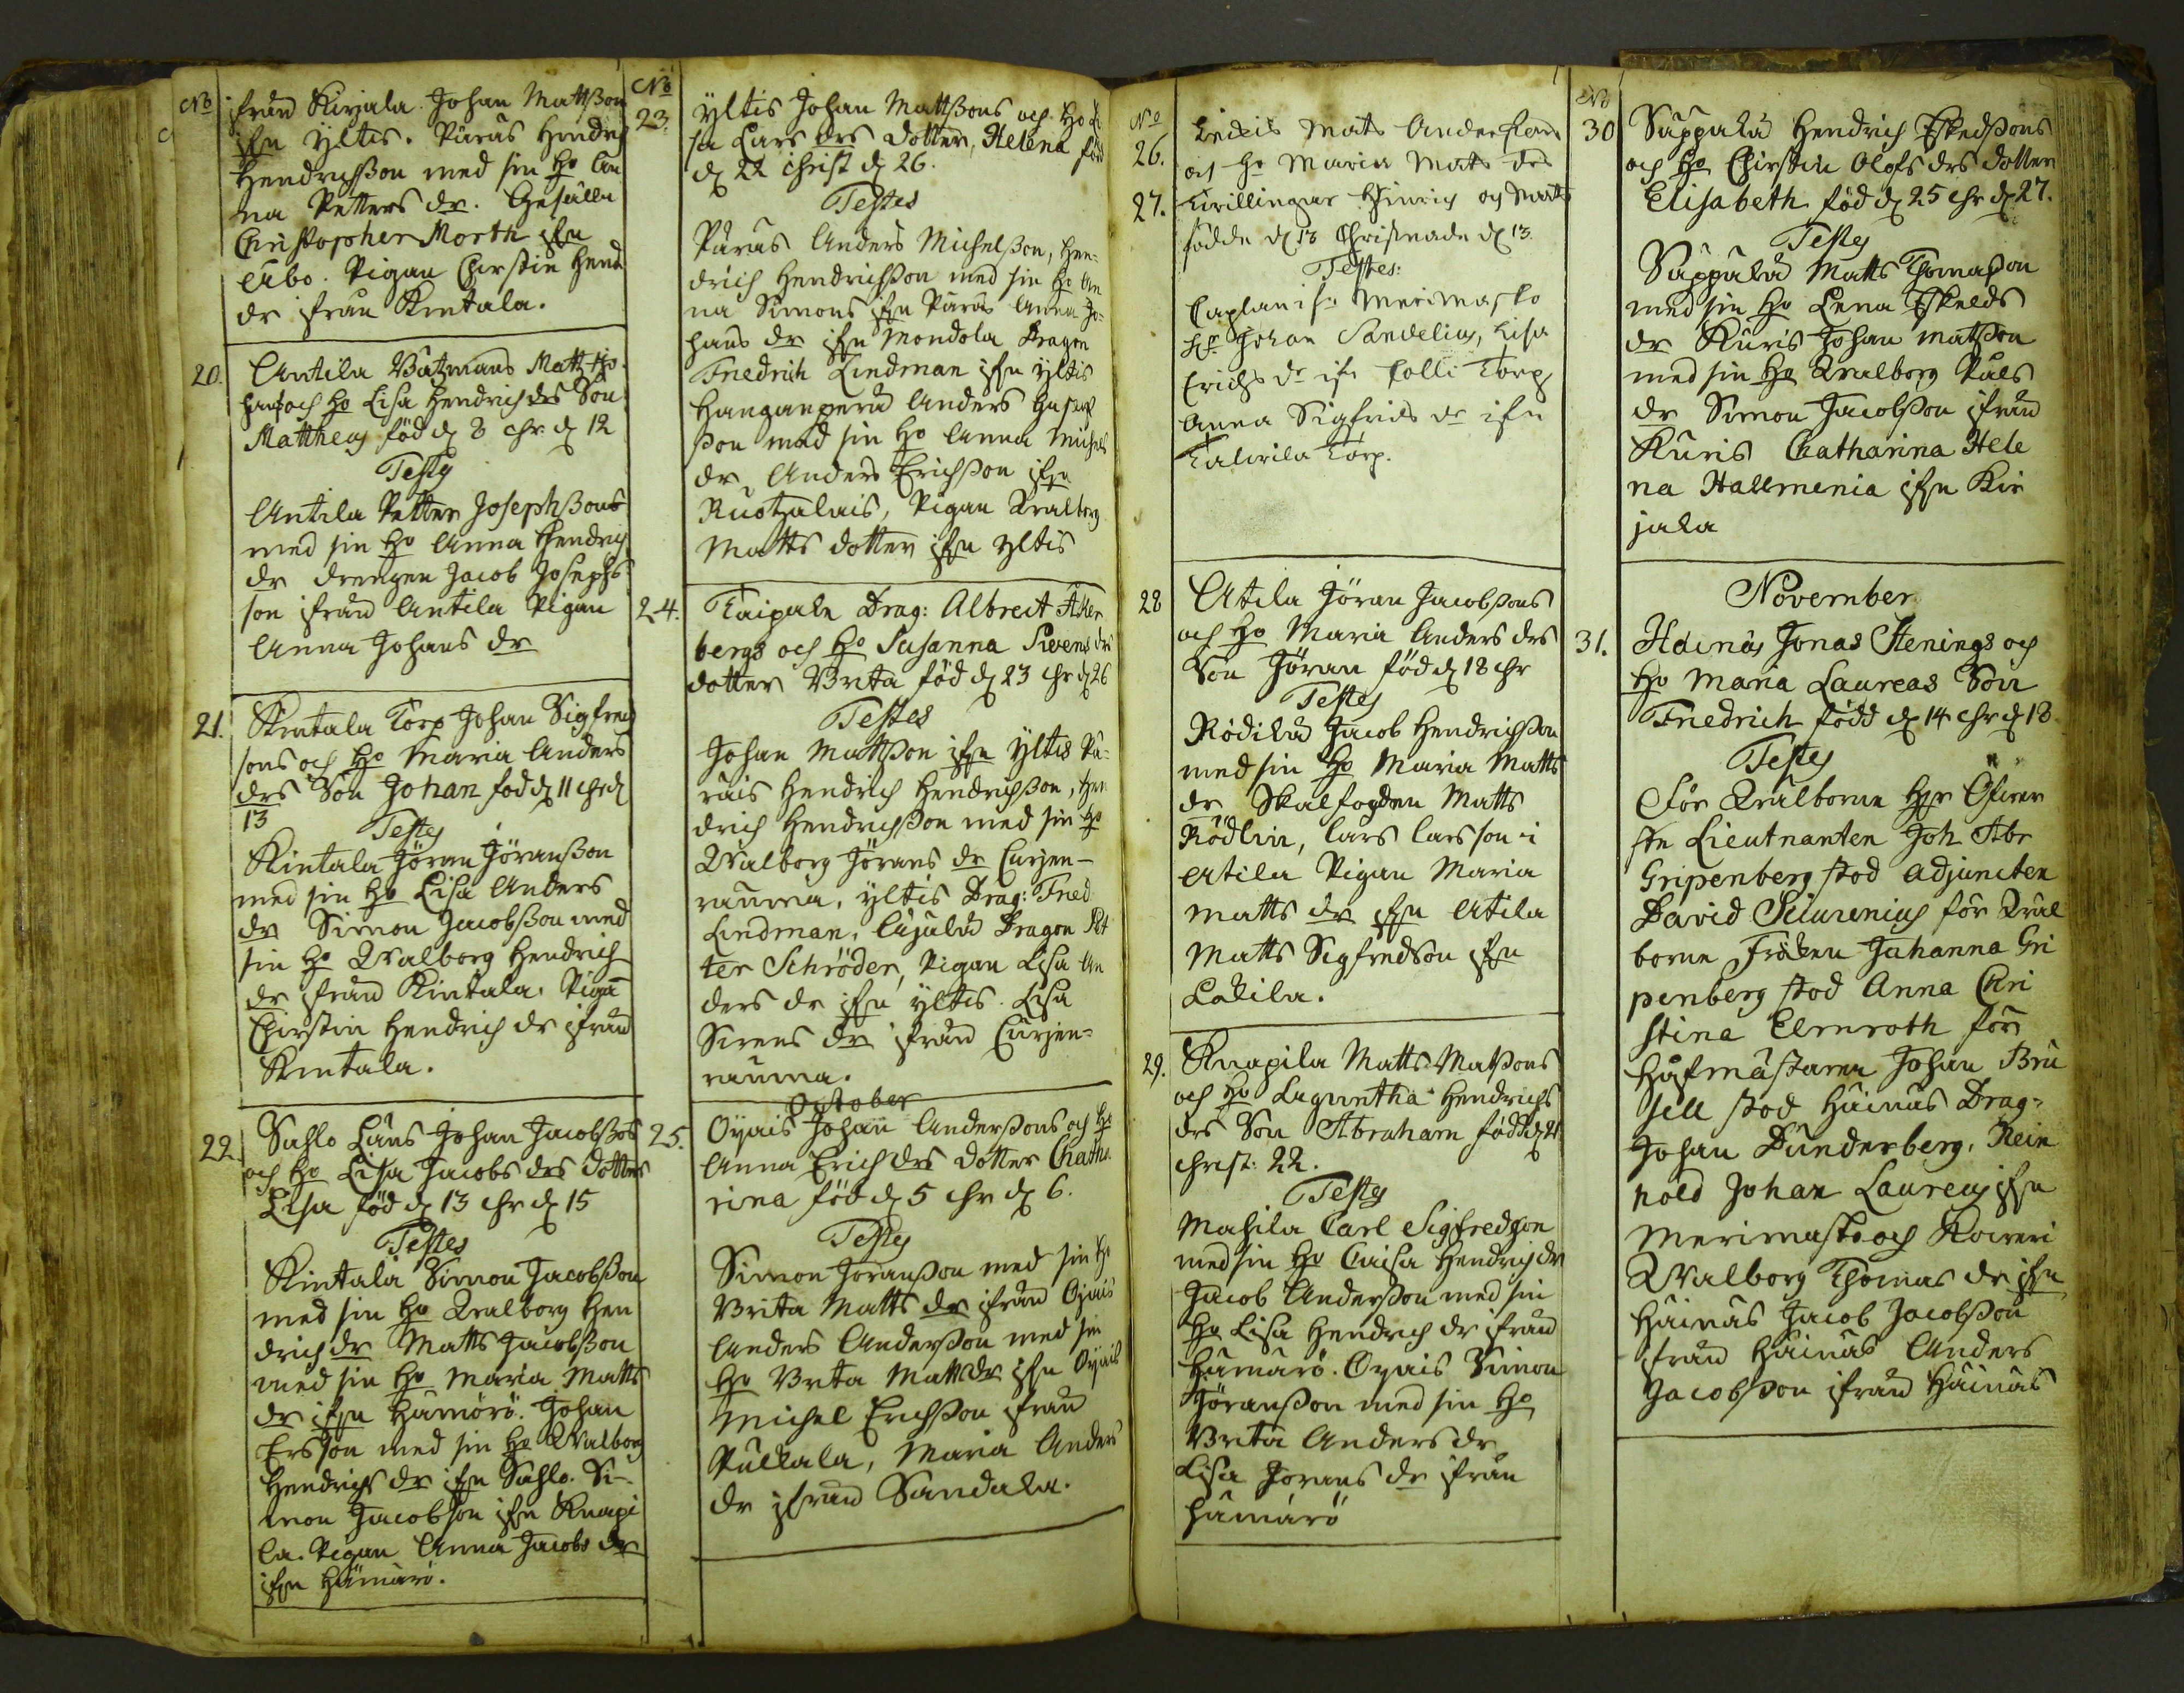 No
från Kirjala. Johan Mattßon
ifrn Yltis. Päräs Hendrich
Hendrichßon med sin Ho An
na Petters dr. Gesälln
Christopher Morth ifrn
Åbo. Pigan Chirstin Hend
dr ifrån Kintala.
20.
Antila Båtzmans Matts Jo
hans och Ho Lisa Hendrichs drs Son
Mattheus född d 8 chr d 12
Testes
Antila Petter Josephßons
med sin Ho Anna Hendrich
dr drengen Jacob Josephs
son ifrån Antila Pigan
Anna Johans dr
21.
Kintala Torp Johan Sigfred
sons och Ho Maria Anders
drs Son Johan född d 11 chr d
13
Testes
Kintala Jöran Jöranßon
med sin Ho Lisa Anders
dr Simon Jacobßon med
sin Ho Walborg Hendrich
dr ifrån Kintala. Piga
Chirstin Hendrich dr ifrån
Kintala.
22.
Suhlo Lans Johan Jacobßos
och Ho Lisa Jacobs drs dotter
Lisa föd d 13 chr d 15
Testes
Kintala Simon Jacobßon
med sin Ho Walborg Hen
drich dr Matts Jacobßon
med sin Ho Maria Matts
dr ifrn Hämärö. Johan
Ersson med sin Ho Walborg
Hendrichs dr ifrn Suhlo. Si-
mon Jacobson ifrn Knapi
la. Pigan Anna Jacobs dr
ifrn Hämärö.
No
23.
Yltis Johan Mattßons och Ho Li
sa Lars drs dotter, Helena född
d 22 christ d 26.
Testes
Päräs Anders Michelßon, Hen-
drich Hendrichßon med sin Ho An
na Simons ifrn Päräs Anna Jo-
hans dr ifrn Mondola Dragon
Friedrich Lindman ifrn Yltis
Hanganperä Anders
ßon med sin Ho Anna Michels
dr Anders Erichßon ifrn
Ruotzalais, Pigan Walborg
Matts dotter ifrn Yltis
24.
Taipale Drag: Albrect Åker
bergs och Ho Susanna Sirens drs
dotter Brita föd d 23 chr d 26
Testes
Johan Mattßon ifrn Yltis Pä-
räis Hendrich Hendrichßon, Hen
drich Hendrichßon med sin Ho
Walborg Jörans dr Curjen-
rauma, Yltis Drag: Fried
Lindman, Dragon Pet
ter Schröder, Pigan Lisa An
ders dr ifrn Yltis. Lisa
Sirens dr ifrån Curjen-
rauma.
October
25.
Oyais Johan Anderßons och Ho
Anna Erich drs dotter Catha
rina föd d 5 chr d 6.
Testes
Simon Joranßon med sin Ho
Brita Matts dr ifrån Ojais
Anders Anderßon med sin
Ho Brita Matts dr ifrn Oyais
Michel Erichßon ifrån
Pullala, Maria Anders
dr ifrån Sandala.
No
26.
Mats Andersson
och Ho Maria Mats drs
27.
Tvillingar Hinrich och Matts
födde d 13 Christnade d 13.
Testes:
Caplan ifrn Merimasko
Hr Johan Sandelius, Lisa
Erichs dr ifn Lolli Torp
Anna Sigfrids dr ifrn
Torp.
28
Atila Jöran Jacobßons
och Ho Maria Anders drs
Son Jöran föd d 18 chr
Testes
Rödilä Jacob Hendrichßon
med sin Ho Maria Matts
dr Skalfogden Matts
Rödlin, Lars Larsson i
Atila Pigan Maria
Matts dr ifrn Atila
Matts Sigfredson ifrn
Lakila.
29.
Knapila Matts Matßons
och Ho Hendrichs
drs Son Abraham född d 21
christ: 22.
Testes
Masila Carl Sigfredson
med sin Ho Caisa Hendrich dr
Jacob Anderßon med sin
Ho Lisa Hendrich dr ifrån
Hämärö. Oyais Simon
Jöranßon med sin Ho
Brita Anders dr
Lisa Jorans dr ifrån
Hämärö
No
30
Säppälä Hendrich Eskelßons
och Ho Chirstin Olofs drs dotter
Elisabeth föd d 25 chr d 27.
Testes
Säppälä Matts Thomaßon
med sin Ho Lena Eskels
dr Kuris Johan Matßon
med sin Ho Walborg Påls
dr Simon Jacobßon ifrån
Kuris Chatharina Hele
na Hallmenia ifrn Kir
jala
November
31.
Häinäs Jonas Stenings och
Ho Maria Laureas Son
Friedrich född d 14 chr d 18
Testes
För Wälborne Hr Öfwer
ste Lieutnanten Joh Abr
Gripenberg stod Adjuncten
David för Wäl
borne Fröken Johanna Gri
penberg stod Anna Chri
stina Elmroth för
Hofmästaren Johan Bru
sell stod Häinäs Drag-
Johan Dunderberg, Rein
hold Johan Laureus ifrn
Merimasko och Koiveri
Walborg Thomas dr ifrn
Häinäs Jacob Jacobßon
ifrån Häinäs Anders
Jacobßon ifrån Häinäs